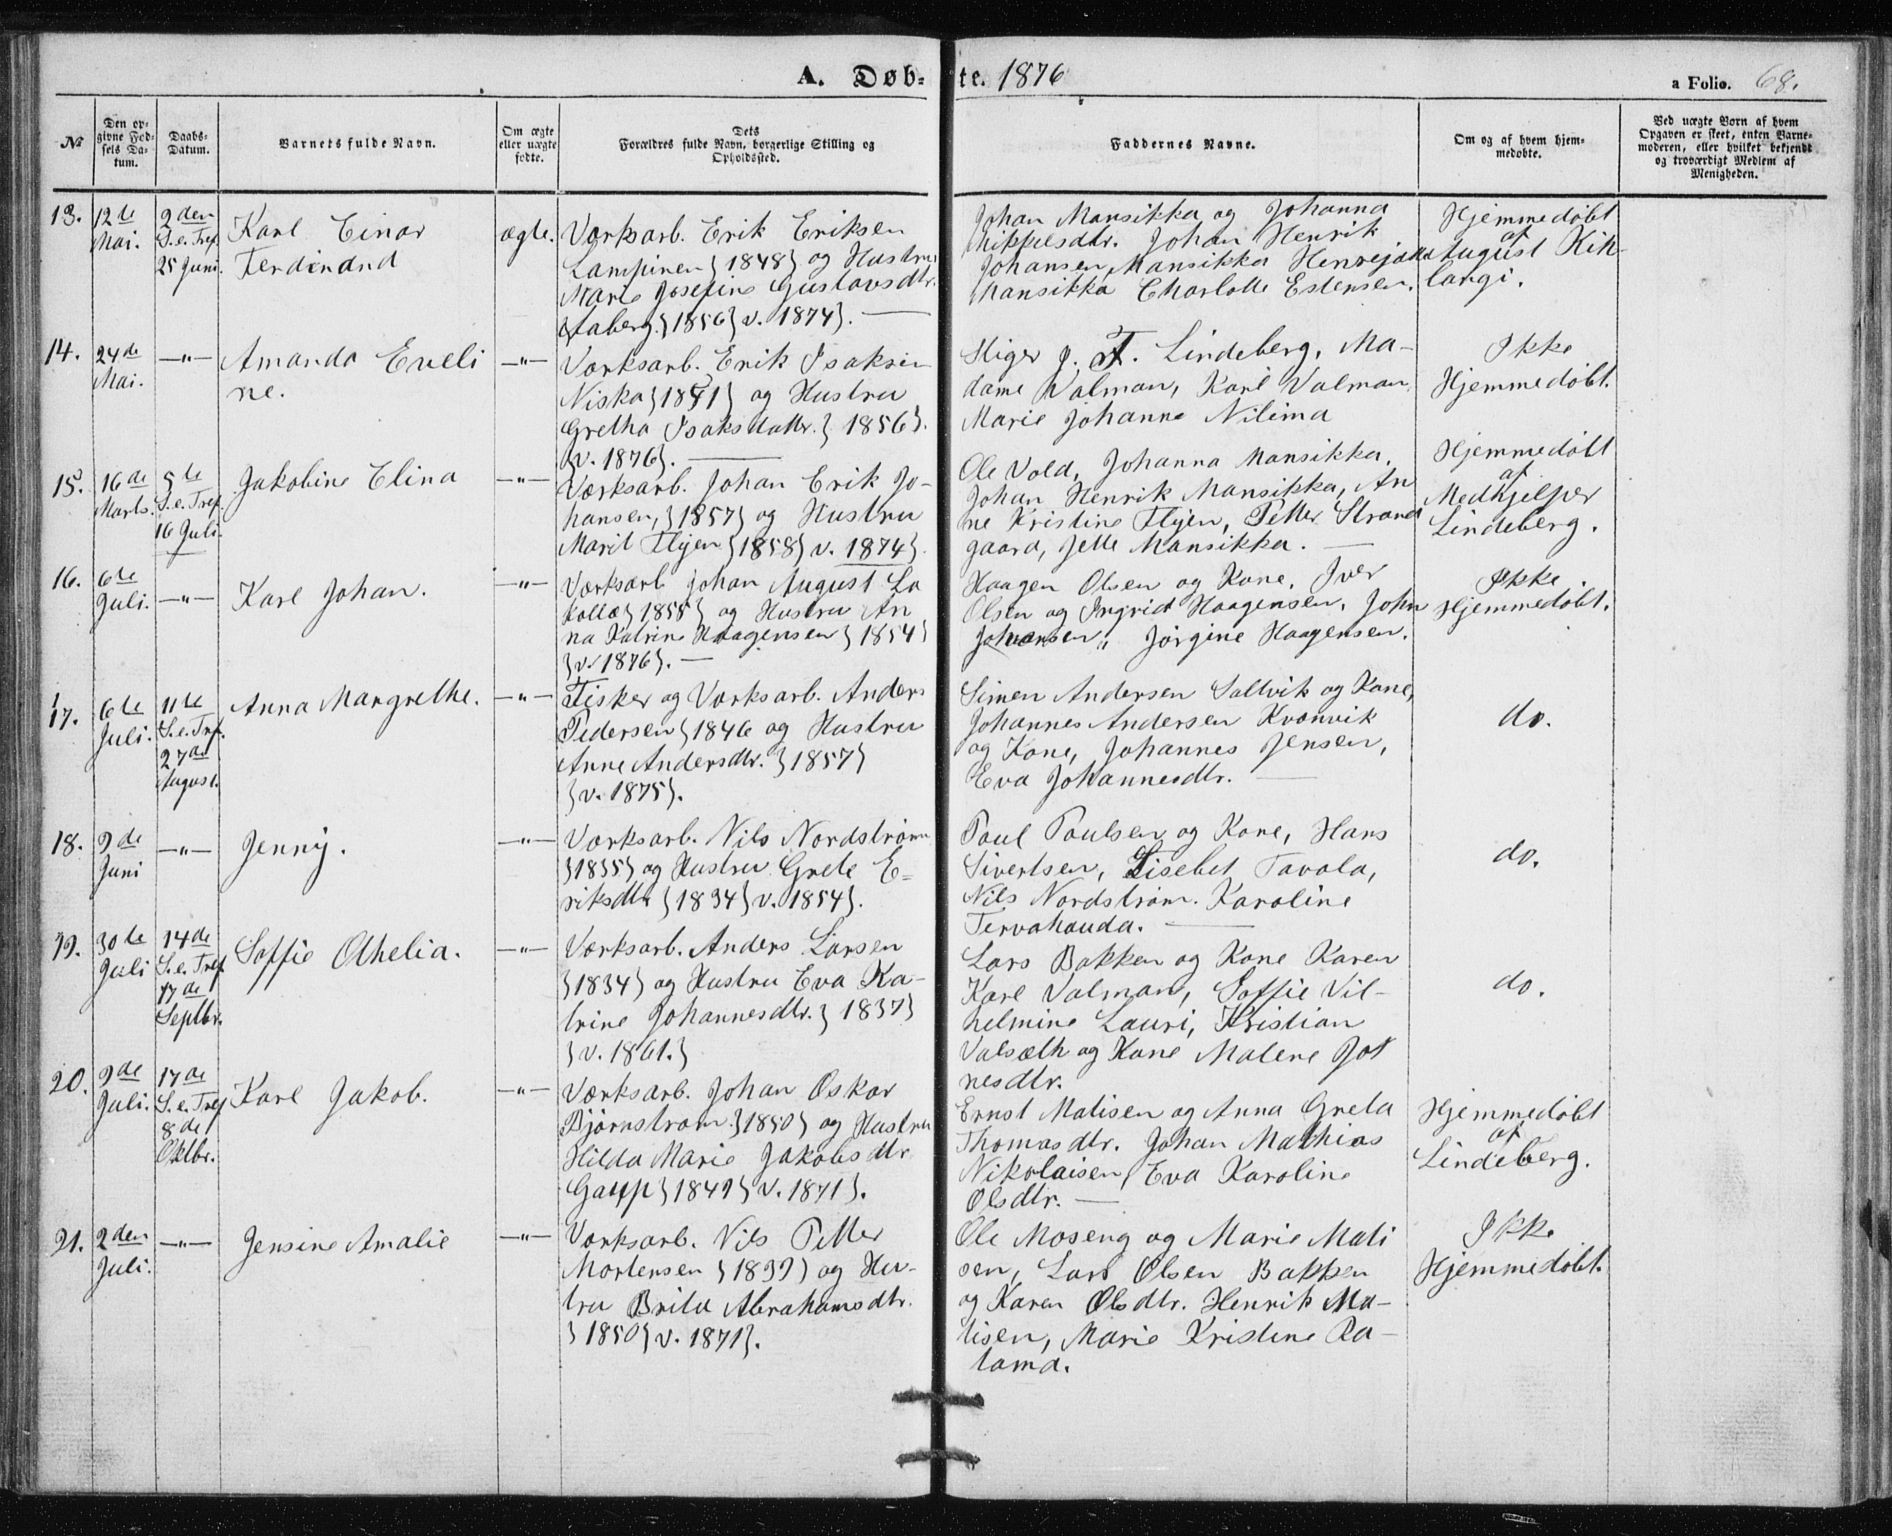 A. Døbte. 1876
a Folio. 68.
№
Den opgivne Fødsels Datum.
Daabs-Datum.
Barnets fulde Navn.
Om ægte eller uægte fødte.
Dets Forældres fulde Navn, borgerlige Stilling og Opholdssted.
Faddernes Navne.
Om og af hvem hjemmedøbte.
Ved uægte Børn af hvem Opgaven er skeet, enten Barnemoderen, eller hvilket bekjendt og troværdigt Medlem af Menigheden.
13. 12te Mai. 2den S. e. Tref. 25 Juni.
Karl Einar
Ferdinand
ægte.
Værksarb. Erik Eriksen
Lampinen }1848} og Hustru
Marie Josefine Gustavsdtr.
Aaberg }1856} v. 1874}. —
Johan Mansikka og Johanna
Mikkelsdtr. Johan Henrik
Johansen Mansikka
Mansikka Charlotte Estensen.
Hjemmedøbt
af
August Kih-
langi.
14. 24de Mai. —"—
Amanda Eveli
ne.
—"—
Værksarb. Erik Isaksen
Niska }1851} og Hustru
Gretha Isaksdattr. } 1856}.
}v. 1876}. —
Stiger J. F. Lindeberg, Ma-
dame Valman, Karl Valman
Marie Johanne Nilima
Ikke
Hjemmedøbt.
15. 16de Marts. 5te S. e. Tref. 16 Juli.
Jakobine Elina
—"—
Værksarb. Johan Erik Jo-
hansen, }1857} og Hustru
Marit Flyen }1858} v. 1874}.
Ole Vold, Johanna Mansikka,
Johan Henrik Mansikka, An
ne Kristine Flyen, Petter Strand
gaard, Jette Mansikka. —
Hjemmedøbt
af
Medhjelper
Lindeberg.
16. 6te Juli. —"—
Karl Johan.
—"—
Værksarb Johan August La
kolla } 1855} og Hustru An
na Katrine Haagensen } 1854}
}v. 1876}. —
Haagen Olsen og Kone, Iver
Olsen og Ingrid Haagensen, John
Johansen, Jørgine Haagensen.
Ikke
Hjemmedøbt.
17. 6te Juli. 11te S. e. Tref. 27de August.
Anna Margrethe.
—"—
Fisker og Værksarb. Anders
Pedersen } 1846 og Hustru
Anne Andersdtr. } 1857}
}v. 1875}.
Simen Andersen Saltvik og Kone,
Johannes Andersen Kvænvik
og Kone, Johannes Jensen,
Eva Johannesdtr. —
do.
18. 9de Juni —"—
Jenny.
—"—
Værksarb. Nils Nordstrøm
}1835} og Hustru Grete E=
riksdtr }1834} v. 1854}.
Paul Paulsen og Kone, Hans
Sivertsen, Lisebet Tavola,
Nils Nordstrøm. Karoline
Tervahauda. —
do.
19. 30te Juli 14de S. e. Tref 17de Septbr.
Soffie Othelia.
—"—
Værksarb. Anders Larsen
}1834} og Hustru Eva Ka-
trine Johannesdtr. } 1837}
} v. 1861.}
Lars Bakken og Kone Karen
Karl Valman, Soffie Vil-
helmine Lauri, Kristian
Valsæth og Kone Malene Jo
nesdtr.
do.
20. 9de Juli. 17de S. e. Tref 8de Oktbr.
Karl Jakob.
—"—
Værksarb. Johan Oskar
Bjørnstrøm. }1850} og Hustru
Hilda Marie Jakobsdtr
Gaupp }1849} v. 1871}.
Ernst Matisen og Anna Greta
Thomasdtr. Johan Mathias
Nikolaisen, Eva Karoline
Olsdtr. —
Hjemmedøbt
af
Lindeberg.
21. 2den Juli. —"—
Jensine Amalie
—"—
Værksarb. Nils Petter
Mortensen }1839} og Hu-
tru Brita Abrahamsdtr.
} 1850} v. 1871}.
Ole Moseng og Marie Mati
sen, Lars Olsen Bakken
og Karen Olsdtr. Henrik Ma-
tisen, Marie Kristine Ra-
tama.
Ikke
Hjemmedøbt.